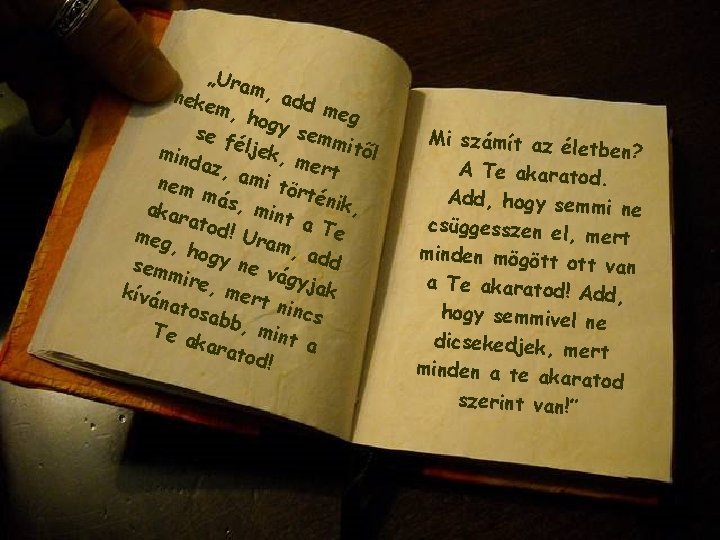 „Uram, add meg
nekem, hogy semmitől
se féljek, mert
mindaz, ami történik,
nem más, mint a Te
akaratod! Uram, add
meg, hogy ne vágyjak
semmire, mert nincs
kívánatosabb, mint a
Te akaratod!
Mi számít az életben?
A Te akaratod.
Add, hogy semmi ne
csüggesszen el, mert
minden mögött ott van
a Te akaratod! Add,
hogy semmivel ne
dicsekedjek, mert
minden a te akaratod
szerint van!”